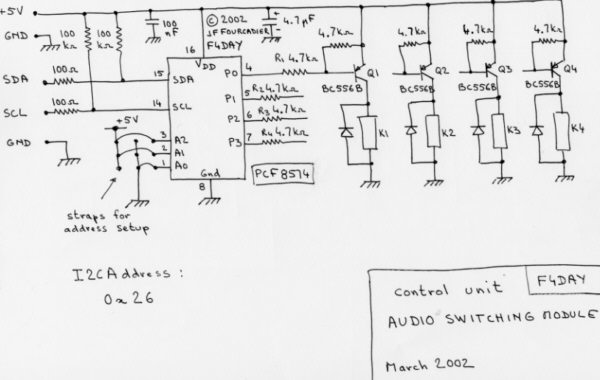 +5V
GND
SDA
SCL
GND
100 kΩ
100 kΩ
100Ω
100Ω
100 nF
© 2002
JF FOURCADIER
F4DAY
4.7µF
16
VDD
15 SDA
14 SCL
+5V
3 A2
2 A1
1 A0
P0 4
P1 5
P2 6
P3 7
Gnd
8
PCF8574
R1 4.7kΩ
R2 4.7kΩ
R3 4.7kΩ
R4 4.7kΩ
4.7kΩ
4.7kΩ
4.7kΩ
4.7kΩ
Q1
Q2
Q3
Q4
BC556B
BC556B
BC556B
BC556B
K1
K2
K3
K4
straps for
address setup
I2C Address :
0x26
Control unit
F4DAY
AUDIO SWITCHING MODULE
March 2002